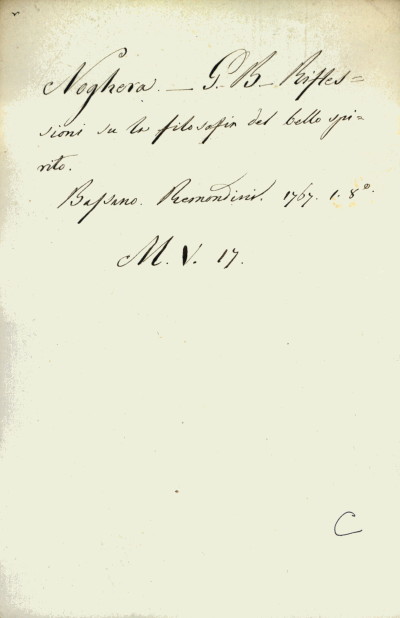 Noghera. — G. B— Rifles=
sioni su la filosofia del bello spi=
rito.
Bassano. Remondini. 1767. 1. 8º.
M. V. 17.
C